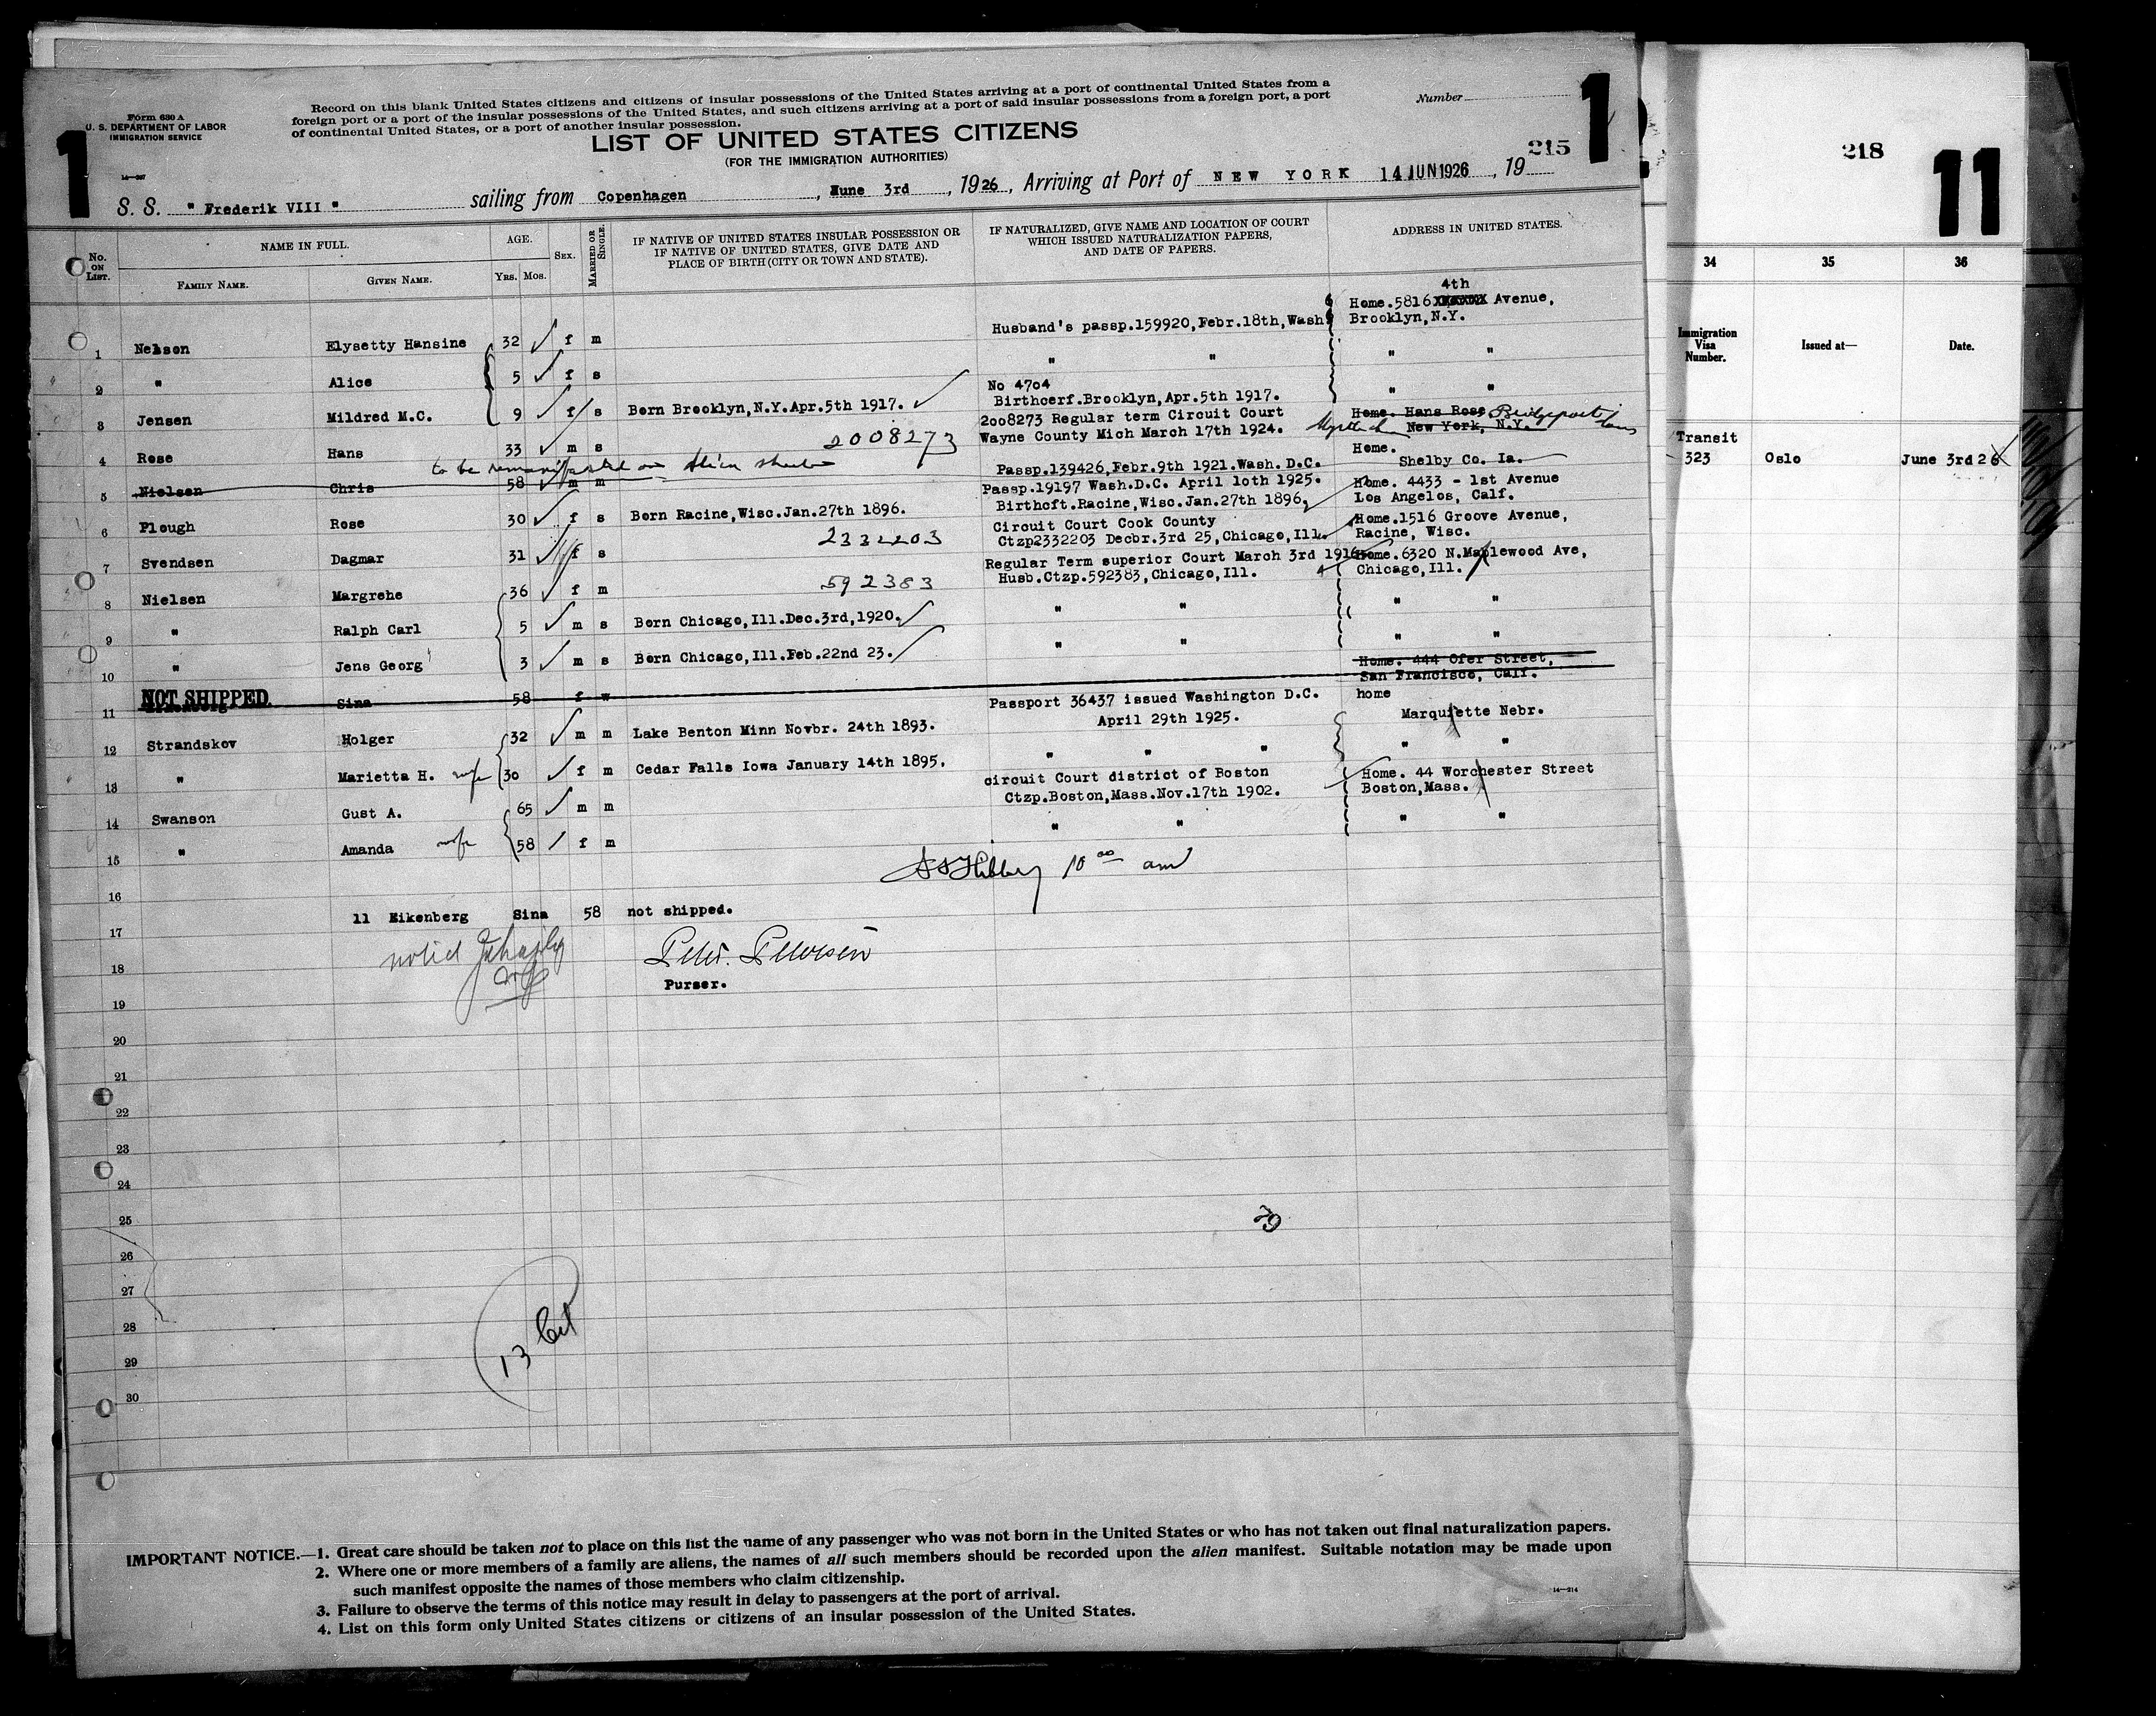 Form 630 A
U. S. DEPARTMENT OF LABOR
IMMIGRATION SERVICE
1
14—227
Record on this blank United States citizens and citizens of insular possessions of the United States arriving at a port of continental United States from a
foreign port or a port of the insular possessions of the United States, and such citizens arriving at a port of said insular possessions from a foreign port, a port
of continental United States, or a port of another insular possession.
Number
1
LIST OF UNITED STATES CITIZENS
(FOR THE IMMIGRATION AUTHORITIES)
215
S. S. " Frederik VIII " sailing from Copenhagen , June 3rd , 1926, Arriving at Port of NEW YORK 14 JUN 1926 , 19
No. ON LIST.
NAME IN FULL.
FAMILY NAME. GIVEN NAME.
AGE.
YRS. MOS.
SEX.
MARRIED OR SINGLE.
IF NATIVE OF UNITED STATES INSULAR POSSESSION OR
IF NATIVE OF UNITED STATES, GIVE DATE AND
PLACE OF BIRTH (CITY OR TOWN AND STATE).
IF NATURALIZED, GIVE NAME AND LOCATION OF COURT
WHICH ISSUED NATURALIZATION PAPERS,
AND DATE OF PAPERS.
ADDRESS IN UNITED STATES.
4th
Home.5816 Avenue,
Brooklyn,N.Y.
1 Nelson Elysetty Hansine 32 f m Husband's passp.159920,Febr.18th,Wash.
2 " Alice 5 f s " " " "
No 4704
3 Jensen Mildred M.C. 9 f s Born Brooklyn,N.Y.Apr.5th 1917. Birthcerf.Brooklyn,Apr.5th 1917. " "
2008273 Regular term Circuit Court Home. Hans Rose Bridgeport
4 Rose Hans 33 m s 2008273 Wayne County Mich March 17th 1924. New York, N.Y.
to be remanifested on Alien sheet
Home.
5 Nielsen Chris 58 m m Passp.139426,Febr.9th 1921.Wash. D.C. Shelby Co. Ia.
Passp.19197 Wash.D.C. April 1oth 1925. Home. 4433 - 1st Avenue
6 Plough Rose 30 f s Born Racine,Wisc.Jan.27th 1896. Birthcft.Racine,Wisc.Jan.27th 1896, Los Angelos, Calf.
Circuit Court Cook County Home.1516 Groove Avenue,
7 Svendsen Dagmar 31 f s 2332203 Ctzp2332203 Decbr.3rd 25,Chicago,Ill. Racine, Wisc.
Regular Term superior Court March 3rd 1916 Home.6320 N.Maplewood Ave,
8 Nielsen Margrehe 36 f m 592383 Husb.Ctzp.592383,Chicago,Ill. Chicago,Ill.
9 " Ralph Carl 5 m s Born Chicago,Ill.Dec.3rd,1920. " " " "
10 " Jens Georg 3 m s Born Chicago,Ill.Feb.22nd 23. " " " "
Home. 444 Ofer Street,
San Francisco, Calf.
11 NOT SHIPPED. Eikenberg Sina 58 f w
Passport 36437 issued Washington D.C. home
12 Strandskov Holger 32 m m Lake Benton Minn Novbr. 24th 1893. April 29th 1925. Marquiette Nebr.
13 " Marietta H. wife 30 f m Cedar Falls Iowa January 14th 1895. " " " " "
circuit Court district of Boston Home. 44 Worchester Street
14 Swanson Gust A. 65 m m Ctzp.Boston,Mass.Nov.17th 1902. Boston,Mass.
15 " Amanda wife 58 f m " " " "
10 00 am
16
11 Eikenberg Sina 58 not shipped.
17
Peter Petersen
18
Purser.
19
20
21
22
23
24
25
26
27
28
29
30
13 Cit
IMPORTANT NOTICE.—1. Great care should be taken not to place on this list the name of any passenger who was not born in the United States or who has not taken out final naturalization papers.
2. Where one or more members of a family are aliens, the names of all such members should be recorded upon the alien manifest. Suitable notation may be made upon
such manifest opposite the names of those members who claim citizenship.
3. Failure to observe the terms of this notice may result in delay to passengers at the port of arrival.
4. List on this form only United States citizens or citizens of an insular possession of the United States.
14—214
218
11
34 35 36
Immigration Visa Number. Issued at— Date.
Transit
323 Oslo June 3rd 26